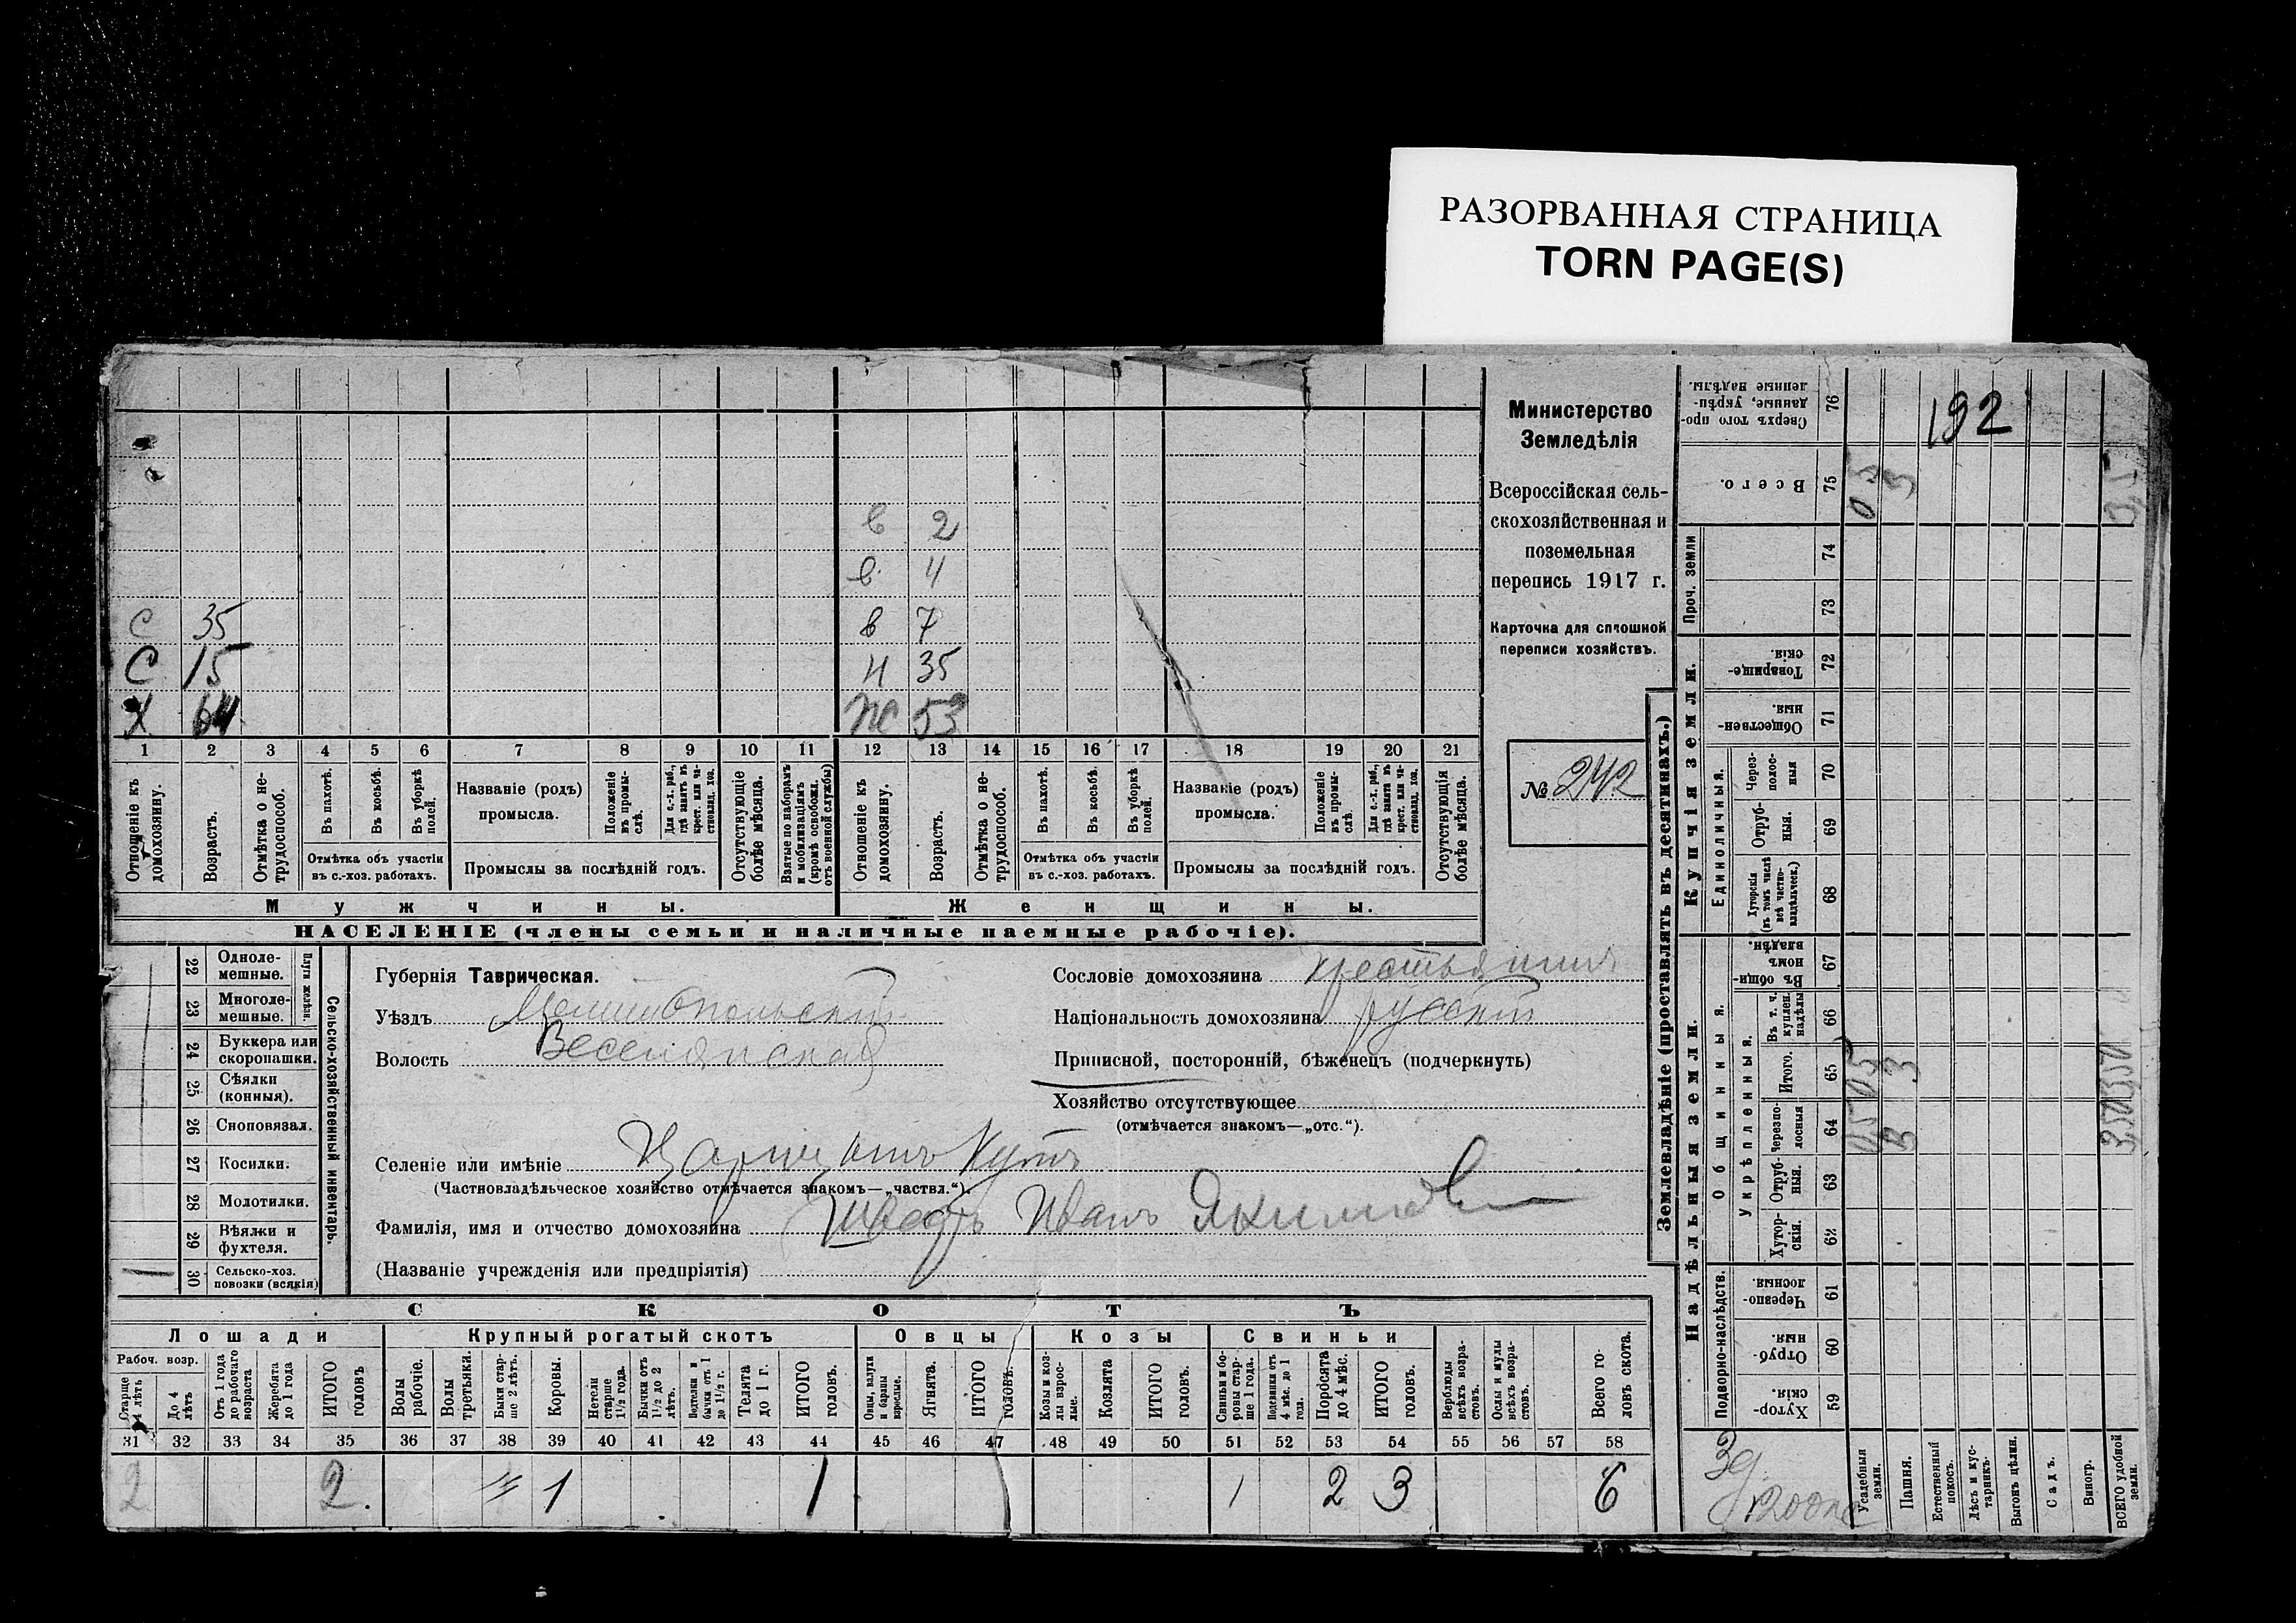 РАЗОРВАННАЯ СТРАНИЦА
TORN PAGE(S)
192
в 2
в. 4
С 35 в 7
С 15 Н 35
Х 64 Ж 53
1 2 3 4 5 6 7 8 9 10 11 12 13 14 15 16 17 18 19 20 21
Отношеніе къ домохозяину.
Возрастъ.
Отмѣтка о не-трудоспособ.
Въ пахотѣ.
Въ косьбѣ.
Въ уборкѣ полей.
Отмѣтка объ участіи въ с.-хоз. работахъ.
Названіе (родъ) промысла.
Положеніе въ промы-слѣ.
Для с.-х. раб., гдѣ занятъ въ крест. или ча-стновлад. хоз.
Промыслы за послѣдній годъ.
Отсутствующіе болѣе мѣсяца.
Взятые по наборамъ и мобилизаціямъ (кромѣ освобожд. отъ военной службы)
Отношеніе къ домохозяину.
Возрастъ.
Отмѣтка о не-трудоспособ.
Въ пахотѣ.
Въ косьбѣ.
Въ уборкѣ полей.
Отмѣтка объ участіи въ с.-хоз. работахъ.
Названіе (родъ) промысла.
Положеніе въ промы-слѣ.
Для с.-х. раб., гдѣ занята въ крест. или ча-стновлад. хоз.
Промыслы за послѣдній годъ.
Отсутствующія болѣе мѣсяца.
Мужчины. Женщины.
НАСЕЛЕНІЕ (члены семьи и наличные наемные рабочіе).
Министерство
Земледѣлія
Всероссійская сель-
скохозяйственная и
поземельная
перепись 1917 г.
Карточка для сплошной
переписи хозяйствъ.
№ 242
22 Одноле-мешные.
23 Многоле-мешные.
Плуги желѣзн.
24 Буккера или скоропашки.
25 Сѣялки (конныя).
26 Сноповязал.
27 Косилки.
28 Молотилки.
29 Вѣялки и фухтеля.
30 Сельско-хоз. повозки (всякія)
Сельско-хозяйственный инвентарь.
Губернія Таврическая.
Уѣздъ Мелитопольскій
Волость Веселянская
Сословіе домохозяина крестьянинъ
Національность домохозяина русскій
Приписной, посторонній, бѣженецъ (подчеркнуть)
Хозяйство отсутствующее
(отмѣчается знакомъ—„отс.“).
Селеніе или имѣніе Царицынъ Кутъ
(Частновладѣльческое хозяйство отмѣчается знакомъ—„частвл.“).
Фамилія, имя и отчество домохозяина Шведъ Иванъ Якимов
(Названіе учрежденія или предпріятія)
СКОТЪ
Лошади Крупный рогатый скотъ Овцы Козы Свиньи
Рабоч. возр.
Старше 4 лѣтъ
До 4 лѣтъ
Отъ 1 года до рабочаго возраста
Жеребята до 1 года
ИТОГО головъ
Волы рабочіе.
Волы третьяки.
Быки стар-ше 2 лѣтъ.
Коровы.
Нетели старше 1½ года.
Бычки отъ 1½ до 2 лѣтъ.
Подтелки и бычки отъ 1 до 1½ г.
Телята до 1 г.
ИТОГО головъ.
Овцы, валухи и бараны взрослые.
Ягнята.
ИТОГО головъ.
Козы и коз-лы взрос-лые.
Козлята
ИТОГО головъ.
Свиньи и бо-ровы стар-ше 1 года.
Подсвинки отъ 4 мѣс. до 1 года.
Поросята до 4 мѣс.
ИТОГО головъ.
Верблюды всѣхъ возра-стовъ.
Ослы и мулы всѣхъ возра-стовъ.
Всего го-ловъ скота.
31 32 33 34 35 36 37 38 39 40 41 42 43 44 45 46 47 48 49 50 51 52 53 54 55 56 57 58
2 2. 1 1 1 2 3 6
Землевладѣніе (проставлять въ десятинахъ.)
Надѣльныя земли. Купчія земли. Проч. земли
Подворно-наслѣдств. Общинныя. Укрѣпленныя. Единоличныя.
Сверхъ того про-данные, укрѣп-ленные надѣлы. 76
Всего. 75 0 5 3
74
73
Товарище-скія 72
Обществен-ныя. 71
Через-полос-ныя 70
Отруб-ныя. 69
Хуторскія (въ томъ числѣ всѣ частно-владѣльческ.) 68
Въ общи-номъ владѣн. 67
Въ т. ч. куплен. надѣлы 66
Итого. 65 05 3
Черезпо-лосныя 64 05 3
Отруб-ныя. 63
Хутор-скія. 62
Черезпо-лосныя. 61
Отруб-ныя. 60
Хутор-скія. 59
3д
1200
Усадебныя земли.
Пашня.
Естественный покосъ.
Лѣсъ и кус-тарникъ.
Выгонъ цѣлин.
Садъ.
Виногр.
ВСЕГО удобной земли.